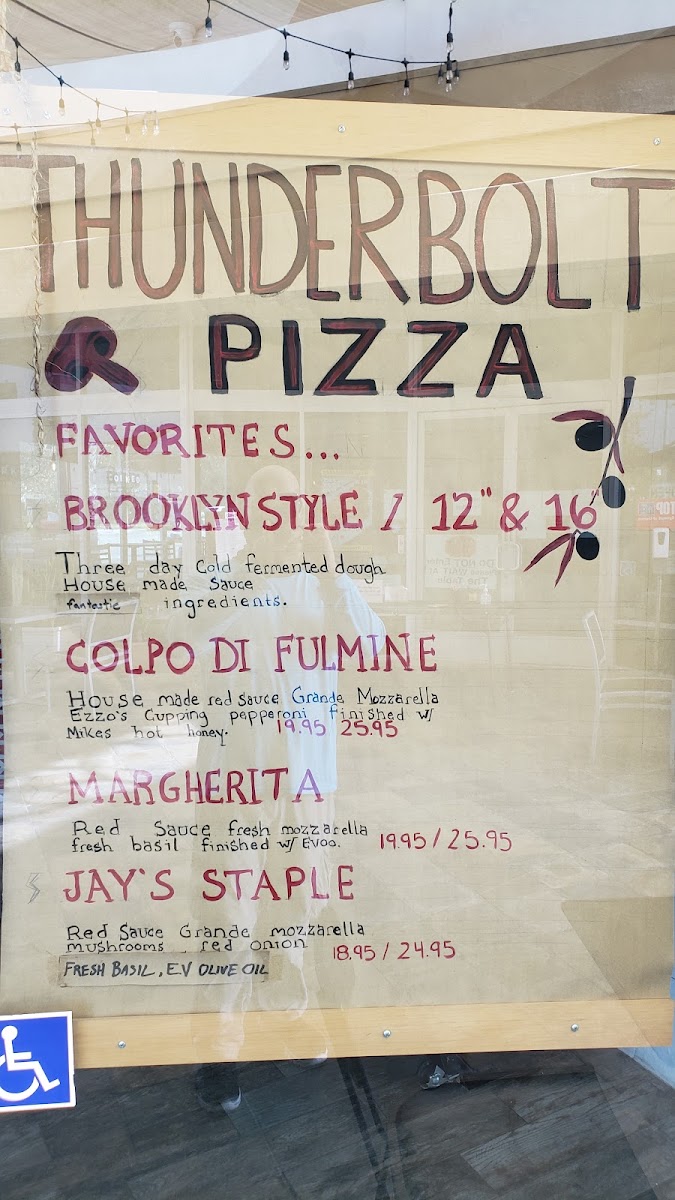 THUNDERBOLT
PIZZA
FAVORITES...
BROOKLYN STYLE / 12" & 16"
Three day cold fermented dough
House made sauce
fantastic ingredients.
COLPO DI FULMINE
House made red sauce Grande Mozzarella
Ezzo's Cupping pepperoni finished w/
Mikes hot honey. 19.95 25.95
MARGHERITA
Red Sauce fresh mozzarella
fresh basil finished w/ Evoo. 19.95 / 25.95
JAY'S STAPLE
Red Sauce Grande mozzarella
mushrooms red onion 18.95 / 24.95
FRESH BASIL, E.V OLIVE OIL